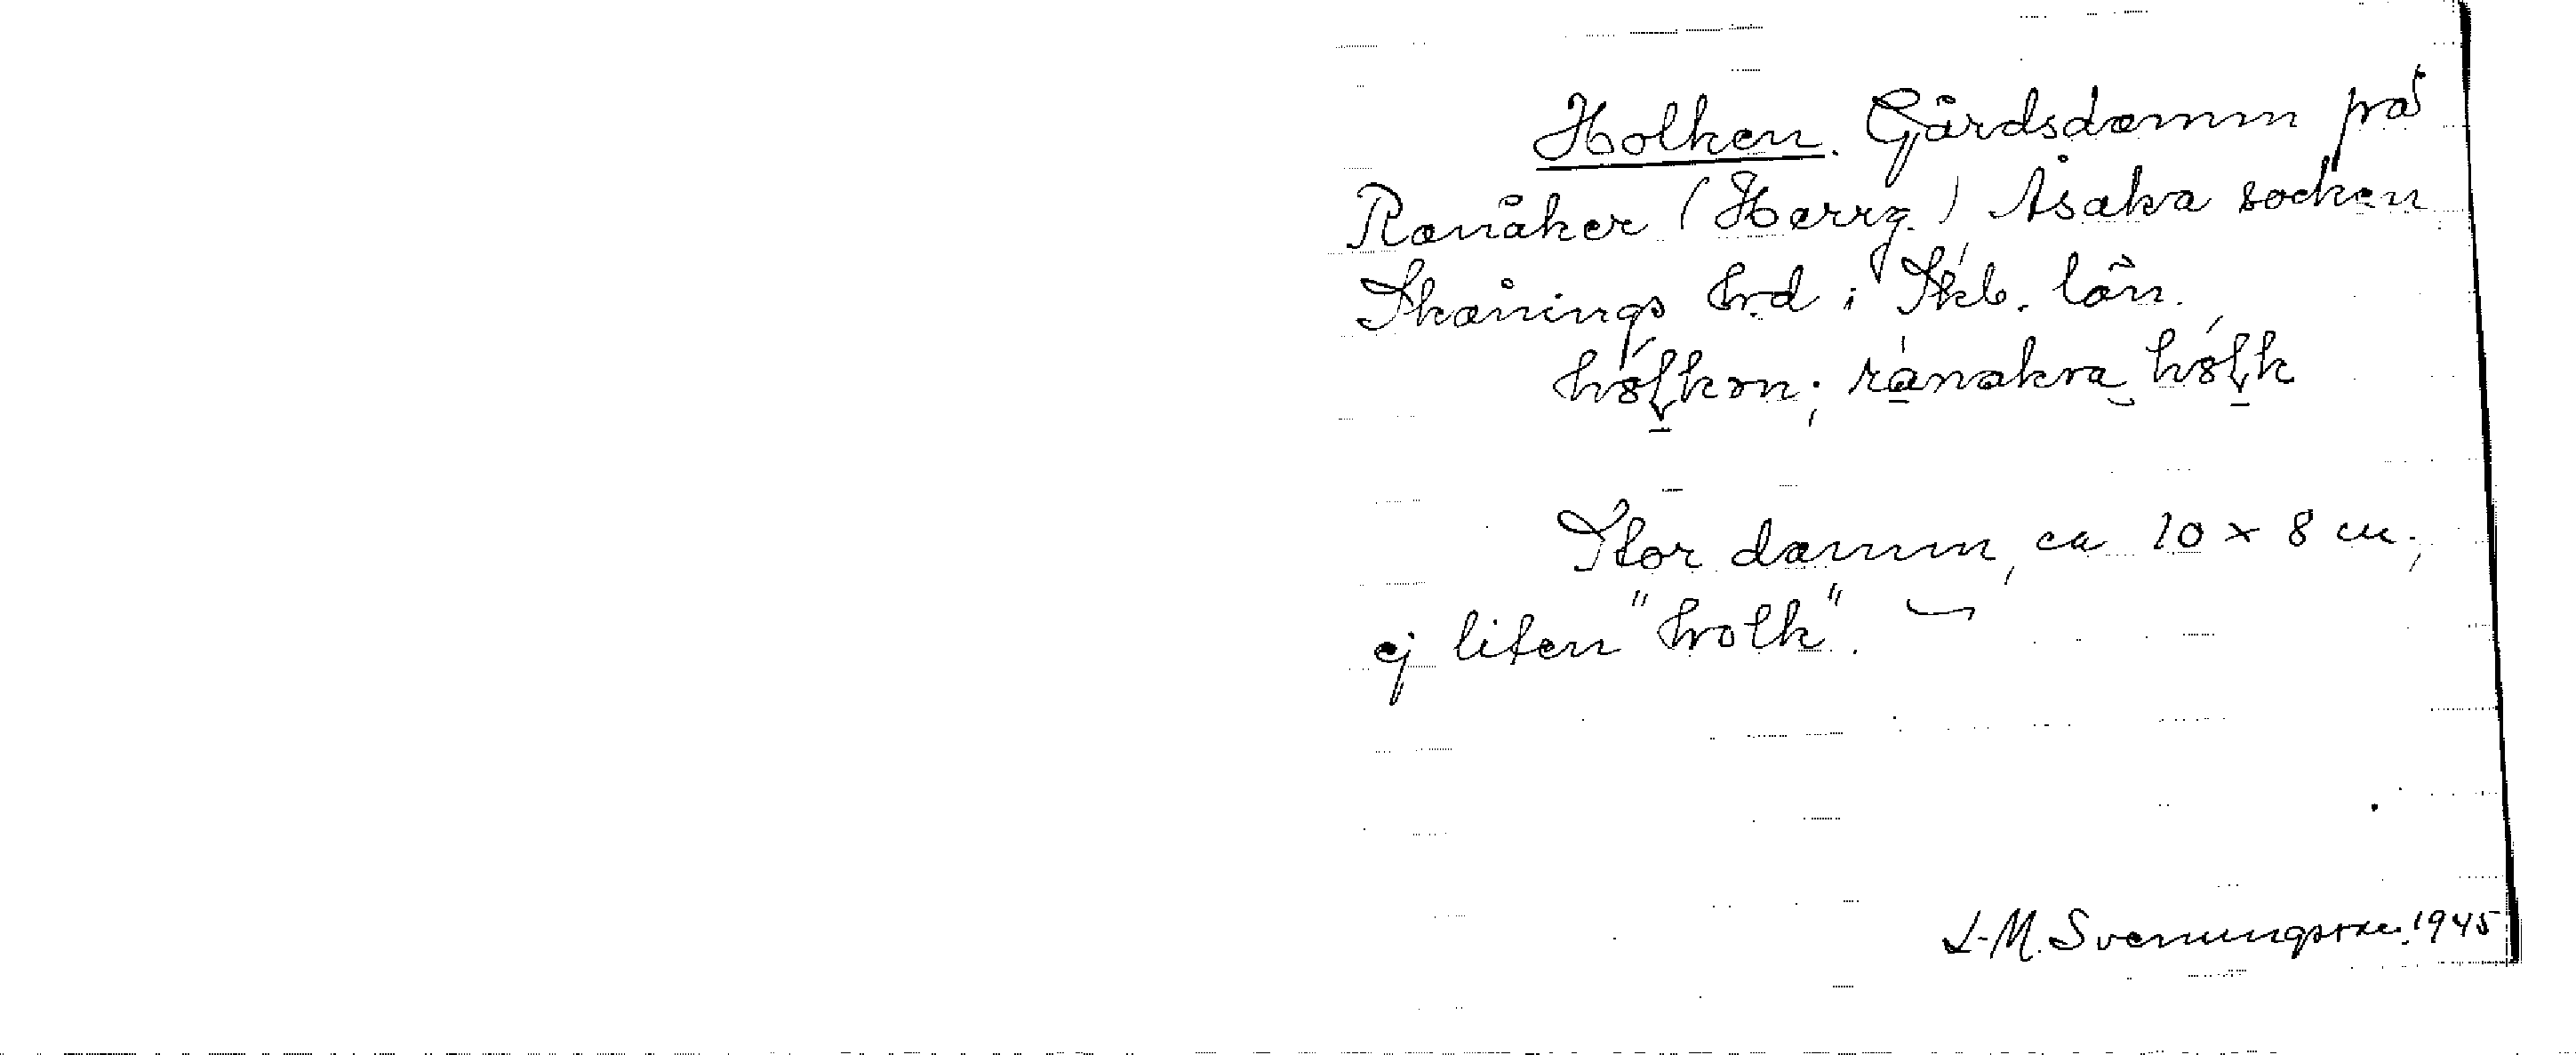 Holken. Gårdsdamm på
Ranåker (Herrg.) Åsaka socken
Skånings hrd i Skb. län.
ranakra
Stor damm, ca 10 x 8 m.;
ej liten "holk".
L-M. Svenungsson. 1945